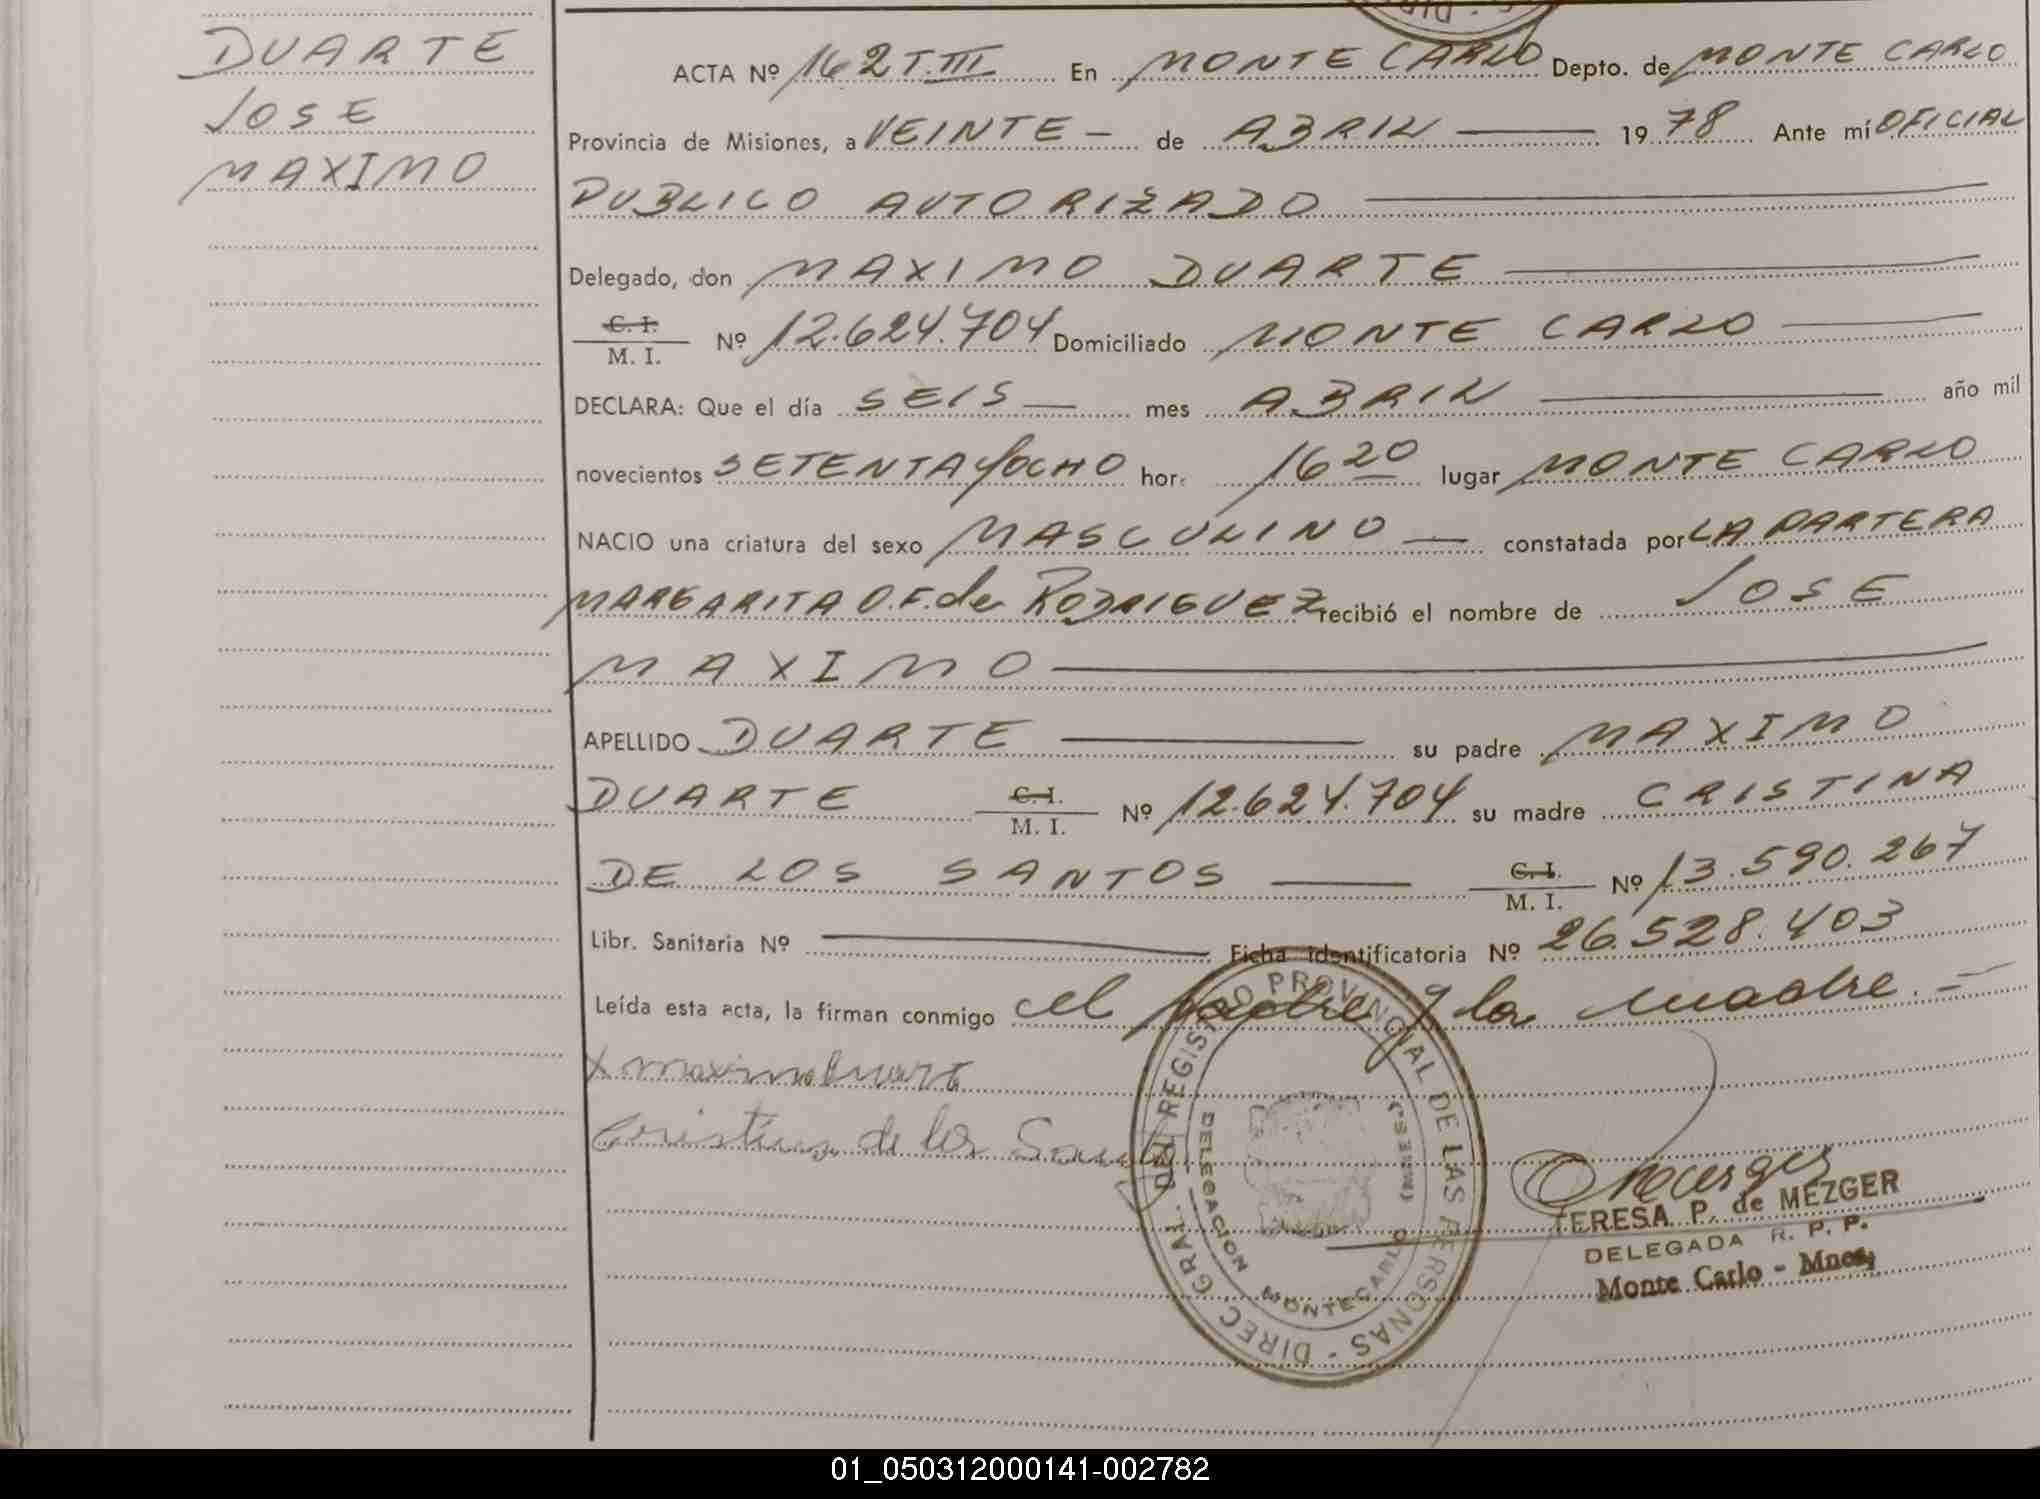 DUARTE
JOSE
MAXIMO
ACTA Nº 162 T.III En MONTE CARLO Depto. de MONTE CARLO
Provincia de Misiones, a VEINTE - de ABRIL 1978 Ante mí OFICIAL
PUBLICO AUTORIZADO
Delegado, don MAXIMO DUARTE
C. I. M. I. Nº 12.624.704 Domiciliado MONTE CARLO
DECLARA: Que el día SEIS mes ABRIL año mil
novecientos SETENTA Y OCHO hor. 16 20 lugar MONTE CARLO
NACIO una criatura del sexo MASCULINO constatada por LA PARTERA
MARGARITA O.F. de RODRIGUEZ recibió el nombre de JOSE
MAXIMO
APELLIDO DUARTE su padre MAXIMO
DUARTE C. I. M. I. Nº 12.624.704 su madre CRISTINA
DE LOS SANTOS C. I. M. I. Nº 13.590.267
Libr. Sanitaria Nº Ficha identificatoria Nº 26.528.403
Leída esta acta, la firman conmigo el padre y la madre.=
X maximo Duarte
Cristina de los Santos
DIREC. GRAL. DEL REGISTRO PROVINCIAL DE LAS PERSONAS -
DELEGACION MONTECARLO (MNES.)
TERESA P. de MEZGER
DELEGADA R. P. P.
Monte Carlo - Mnes.
01_050312000141-002782